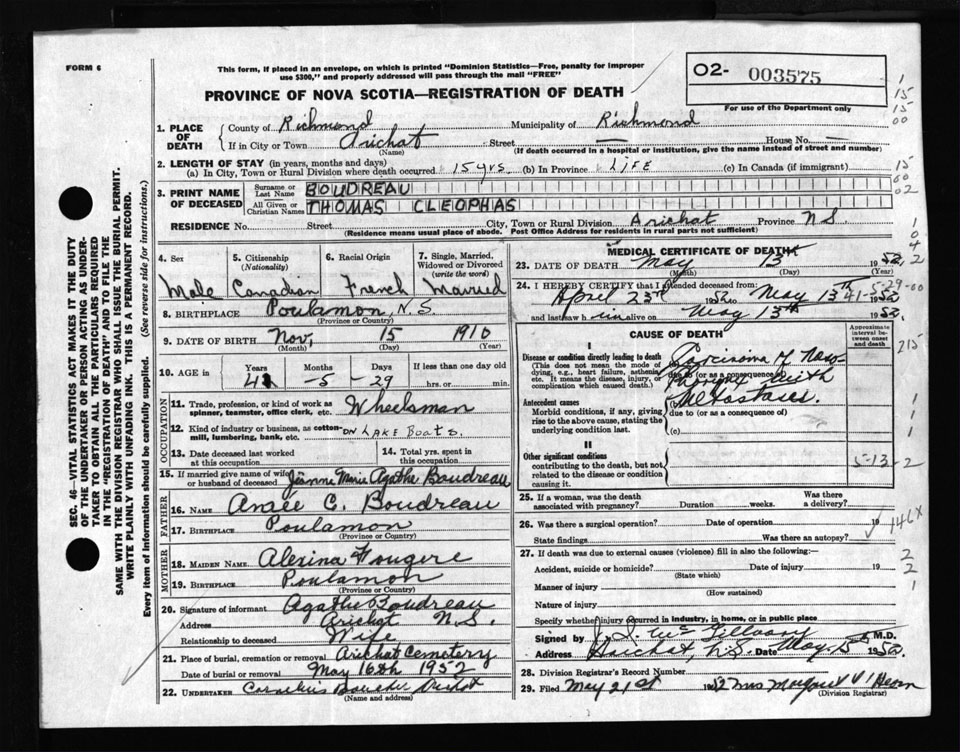 FORM 6
This form, if placed in an envelope, on which is printed "Dominion Statistics—Free, penalty for improper
use $300," and properly addressed will pass through the mail "FREE"
PROVINCE OF NOVA SCOTIA—REGISTRATION OF DEATH
O2- 003575
For use of the Department only
1
15
15
00
1. PLACE OF DEATH
County of Richmond Municipality of Richmond
If in City or Town Arichat Street — House No. —
(Name) (If death occurred in a hospital or institution, give the name instead of street and number)
2. LENGTH OF STAY (in years, months and days)
(a) In City, Town or Rural Division where death occurred 15 yrs. (b) In Province LIFE (c) In Canada (if immigrant)
15
60
02
3. PRINT NAME OF DECEASED
Surname or Last Name BOUDREAU
All Given or Christian Names THOMAS CLEOPHAS
RESIDENCE No. Street City, Town or Rural Division Arichat Province N.S.
(Residence means usual place of abode. Post Office Address for residents in rural parts not sufficient)
4. Sex
5. Citizenship (Nationality)
6. Racial Origin
7. Single, Married, Widowed or Divorced (write the word)
Male Canadian French Married
8. BIRTHPLACE Poulamon, N.S.
(Province or Country)
9. DATE OF BIRTH Nov. 15 1910
(Month) (Day) (Year)
10. AGE in Years Months Days If less than one day old
41 -5- 29 hrs. or min.
OCCUPATION
11. Trade, profession, or kind of work as
spinner, teamster, office clerk, etc. Wheelsman
12. Kind of industry or business, as cotton-
mill, lumbering, bank, etc. ON LAKE Boats.
13. Date deceased last worked
at this occupation
14. Total yrs. spent in
this occupation
15. If married give name of wife
or husband of deceased Jeanne Marie Agathe Boudreau
FATHER
16. Name C. Boudreau
17. BIRTHPLACE Poulamon
(Province or Country)
MOTHER
18. MAIDEN NAME Alexina Fougere
19. BIRTHPLACE Poulamon
(Province or Country)
20. Signature of informant Agathe Boudreau
Address Arichat N.S.
Relationship to deceased Wife
21. Place of burial, cremation or removal Arichat Cemetery
Date of burial or removal May 16th 1952
22. UNDERTAKER Arichat
(Name and address)
MEDICAL CERTIFICATE OF DEATH
23. DATE OF DEATH May 13 1952
(Month) (Day) (Year)
24. I HEREBY CERTIFY that I attended deceased from:
April 23rd 1952 to May 13th 1952
and last saw him alive on May 13th 1952.
CAUSE OF DEATH
Approximate interval between onset and death
I
Disease or condition directly leading to death
(This does not mean the mode of
dying, e.g., heart failure, asthenia,
etc. It means the disease, injury, or
complication which caused death.)
due to (or as a consequence of)
Carcinoma of Naso-
Pharynx with
Metastases.
Antecedent causes
Morbid conditions, if any, giving
rise to the above cause, stating the
underlying condition last.
due to (or as a consequence of)
(c)
II
Other significant conditions
contributing to the death, but not
related to the disease or condition
causing it.
5-13-2
25. If a woman, was the death
associated with pregnancy? Duration weeks. Was there a delivery?
26. Was there a surgical operation? Date of operation 19
State findings Was there an autopsy?
146X
27. If death was due to external causes (violence) fill in also the following:—
Accident, suicide or homicide? Date of injury 19
(State which)
Manner of injury
(How sustained)
Nature of injury
Specify whether injury occurred in industry, in home, or in public place
Signed by M.D.
Address Arichat, N.S. Date May 1952.
28. Division Registrar's Record Number
29. Filed May 21st 1952 Mrs Margaret
(Division Registrar)
SEC. 46—VITAL STATISTICS ACT MAKES IT THE DUTY
OF THE UNDERTAKER OR PERSON ACTING AS UNDER-
TAKER TO OBTAIN ALL THE PARTICULARS REQUIRED
IN THE "REGISTRATION OF DEATH" AND TO FILE THE
SAME WITH THE DIVISION REGISTRAR WHO SHALL ISSUE THE BURIAL PERMIT.
WRITE PLAINLY WITH UNFADING INK. THIS IS A PERMANENT RECORD.
Every item of information should be carefully supplied. (See reverse side for instructions.)